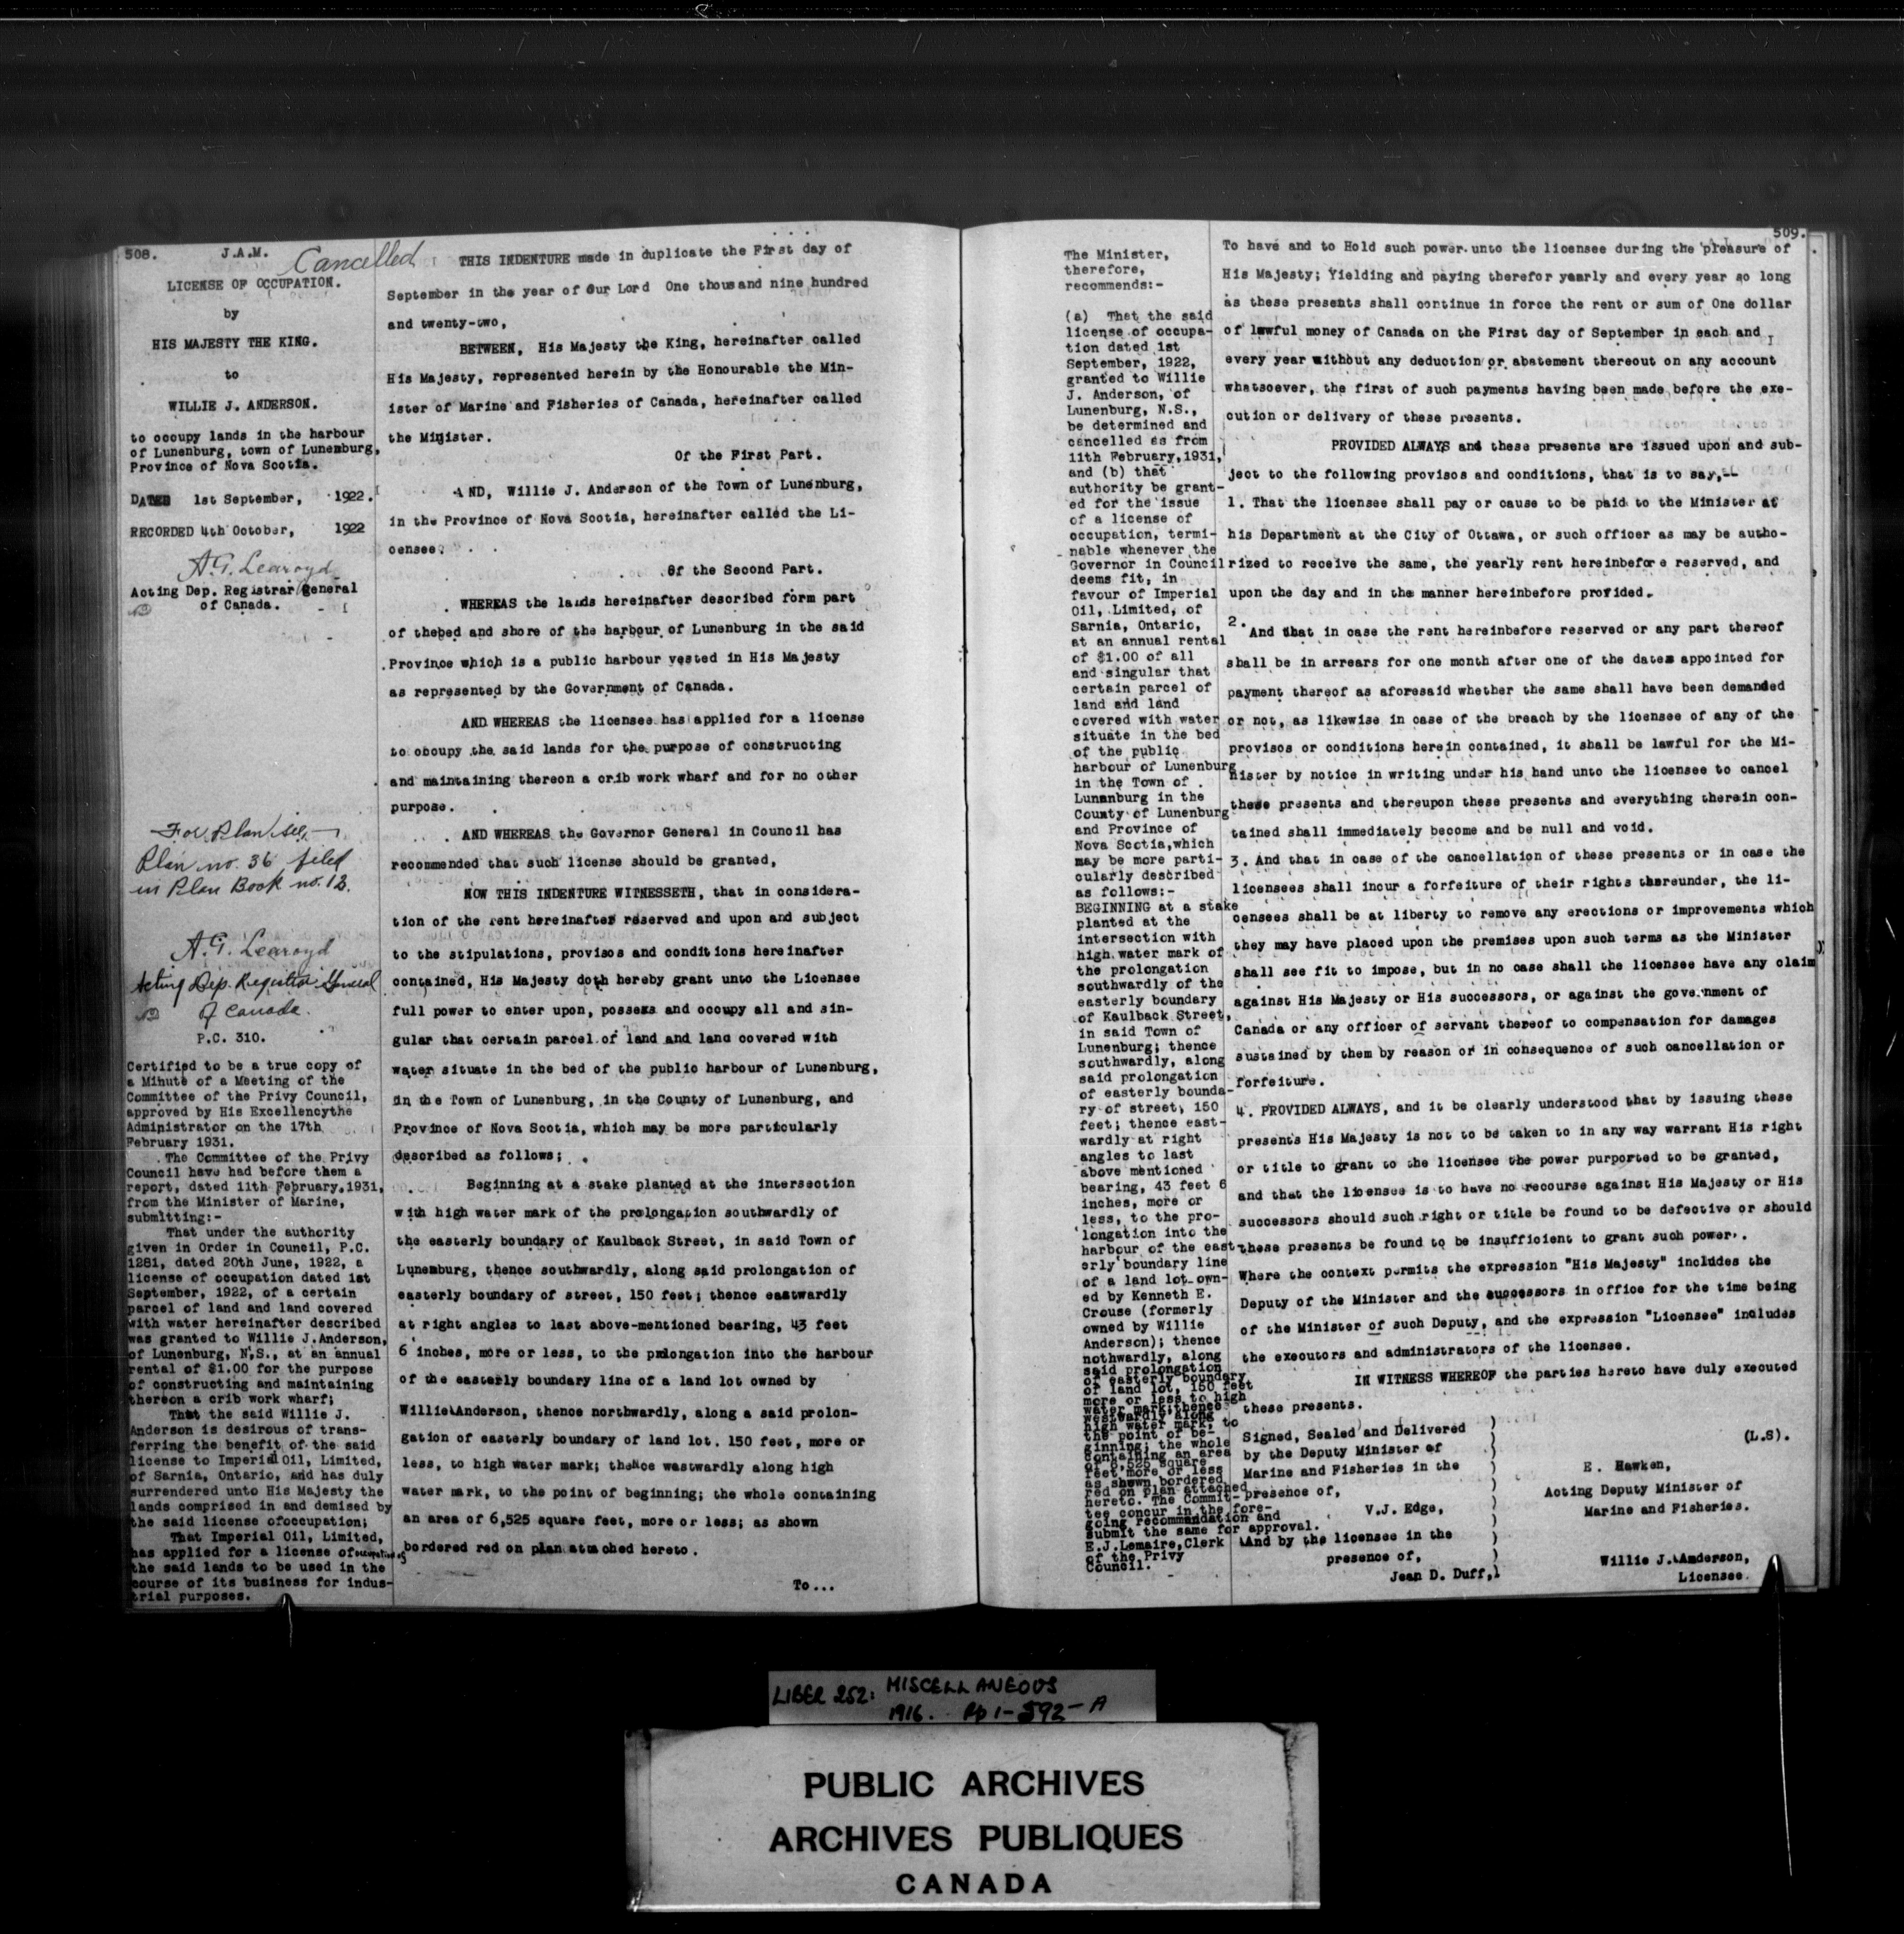 508.
J.A.M.
Cancelled
LICENSE OF OCCUPATION.
by
HIS MAJESTY THE KING.
to
WILLIE J. ANDERSON.
to occupy lands in the harbour
of Lunenburg, town of Lunenburg,
Province of Nova Scotia.
DATED 1st September, 1922.
RECORDED 4th October, 1922
A.G. Learoyd
Acting Dep. Registrar General
of Canada.
For Plan see,
Plan no. 36 filed
in Plan Book no. 12.
A.G. Learoyd
Acting Dep. Registrar General
of Canada.
P.C. 310.
Certified to be a true copy of
a Minute of a Meeting of the
Committee of the Privy Council,
approved by His Excellencythe
Administrator on the 17th
February 1931.
The Committee of the Privy
Council have had before them a
report, dated 11th February,1931,
from the Minister of Marine,
submitting:-
That under the authority
given in Order in Council, P.C.
1281, dated 20th June, 1922, a
license of occupation dated 1st
September, 1922, of a certain
parcel of land and land covered
with water hereinafter described
was granted to Willie J.Anderson,
of Lunenburg, N.S., at an annual
rental of $1.00 for the purpose
of constructing and maintaining
thereon a crib work wharf;
That the said Willie J.
Anderson is desirous of trans-
ferring the benefit of the said
license to Imperial Oil, Limited,
of Sarnia, Ontario, and has duly
surrendered unto His Majesty the
lands comprised in and demised by
the said license ofoccupation;
That Imperial Oil, Limited,
has applied for a license of occupation of
the said lands to be used in the
course of its business for indus-
trial purposes.
THIS INDENTURE made in duplicate the First day of
September in the year of Our Lord One thousand nine hundred
and twenty-two,
BETWEEN, His Majesty the King, hereinafter called
His Majesty, represented herein by the Honourable the Min-
ister of Marine and Fisheries of Canada, hereinafter called
the Minister.
Of the First Part.
AND, Willie J. Anderson of the Town of Lunenburg,
in the Province of Nova Scotia, hereinafter called the Li-
censee.
Of the Second Part.
WHEREAS the lands hereinafter described form part
of thebed and shore of the harbour of Lunenburg in the said
Province which is a public harbour vested in His Majesty
as represented by the Government of Canada.
AND WHEREAS the licensee has applied for a license
to occupy the said lands for the purpose of constructing
and maintaining thereon a crib work wharf and for no other
purpose.
AND WHEREAS the Governor General in Council has
recommended that such license should be granted,
NOW THIS INDENTURE WITNESSETH, that in considera-
tion of the rent hereinafter reserved and upon and subject
to the stipulations, provisos and conditions hereinafter
contained, His Majesty doth hereby grant unto the Licensee
full power to enter upon, possess and occupy all and sin-
gular that certain parcel of land and land covered with
water situate in the bed of the public harbour of Lunenburg,
in the Town of Lunenburg, in the County of Lunenburg, and
Province of Nova Scotia, which may be more particularly
described as follows;
Beginning at a stake planted at the intersection
with high water mark of the prolongation southwardly of
the easterly boundary of Kaulback Street, in said Town of
Lunemburg, thence southwardly, along said prolongation of
easterly boundary of street, 150 feet; thence eastwardly
at right angles to last above-mentioned bearing, 43 feet
6 inches, more or less, to the prolongation into the harbour
of the easterly boundary line of a land lot owned by
Willie Anderson, thence northwardly, along a said prolon-
gation of easterly boundary of land lot. 150 feet, more or
less, to high water mark; thence wastwardly along high
water mark, to the point of beginning; the whole containing
an area of 6,525 square feet, more or less; as shown
bordered red on plan attached hereto.
To...
509.
The Minister,
therefore,
recommends:-
(a) That the said
license of occupa-
tion dated 1st
September, 1922,
granted to Willie
J. Anderson, of
Lunenburg, N.S.,
be determined and
cancelled as from
11th February,1931,
and (b) that
authority be grant-
ed for the issue
of a license of
occupation, termi-
nable whenever the
Governor in Council
deems fit, in
favour of Imperial
Oil, Limited, of
Sarnia, Ontario,
at an annual rental
of $1.00 of all
and singular that
certain parcel of
land and land
covered with water
situate in the bed
of the public
harbour of Lunenburg
in the Town of
Lunanburg in the
County of Lunenburg
and Province of
Nova Scotia,which
may be more parti-
cularly described
as follows:-
BEGINNING at a stake
planted at the
intersection with
high water mark of
the prolongation
southwardly of the
easterly boundary
of Kaulback Street,
in said Town of
Lunenburg; thence
southwardly, along
said prolongation
of easterly bounda-
ry of street, 150
feet; thence east-
wardly at right
angles to last
above mentioned
bearing, 43 feet 6
inches, more or
less, to the pro-
longation into the
harbour of the east-
erly boundary line
of a land lot own-
ed by Kenneth E.
Crouse (formerly
owned by Willie
Anderson); thence
nothwardly, along
said prolongation
of easterly boundary
of land lot, 150 feet
more or less to high
water mark;thence
westwardly along
high water mark, to
the point of be-
ginning; the whole
containing an area
of 6,525 square
feet more or less
as shown bordered
red on plan attached
hereto. The Commit-
tee concur in the fore-
going recommandation and
submit the same for approval.
E.J.Lemaire,Clerk
of the Privy
Council.
To have and to Hold such power unto the licensee during the pleasure of
His Majesty; Yielding and paying therefor yearly and every year so long
as these presents shall continue in force the rent or sum of One dollar
of lawful money of Canada on the First day of September in each and
every year without any deduction or abatement thereout on any account
whatsoever, the first of such payments having been made before the exe-
cution or delivery of these presents.
PROVIDED ALWAYS and these presents are issued upon and sub-
ject to the following provisos and conditions, that is to say,--
1. That the licensee shall pay or cause to be paid to the Minister at
his Department at the City of Ottawa, or such officer as may be autho-
rized to receive the same, the yearly rent hereinbefore reserved, and
upon the day and in the manner hereinbefore provided.
2. And that in case the rent hereinbefore reserved or any part thereof
shall be in arrears for one month after one of the dates appointed for
payment thereof as aforesaid whether the same shall have been demanded
or not, as likewise in case of the breach by the licensee of any of the
provisos or conditions herein contained, it shall be lawful for the Mi-
nister by notice in writing under his hand unto the licensee to cancel
these presents and thereupon these presents and everything therein con-
tained shall immediately become and be null and void.
3. And that in case of the cancellation of these presents or in case the
licensees shall incur a forfeiture of their rights thereunder, the li-
censees shall be at liberty to remove any erections or improvements which
they may have placed upon the premises upon such terms as the Minister
shall see fit to impose, but in no case shall the licensee have any claim
against His Majesty or His successors, or against the government of
Canada or any officer of servant thereof to compensation for damages
sustained by them by reason or in consequence of such cancellation or
forfeiture.
4. PROVIDED ALWAYS, and it be clearly understood that by issuing these
presents His Majesty is not to be taken to in any way warrant His right
or title to grant to the licensee the power purported to be granted,
and that the licensee is to have no recourse against His Majesty or His
successors should such right or title be found to be defective or should
these presents be found to be insufficient to grant such power.
Where the context permits the expression "His Majesty" includes the
Deputy of the Minister and the successors in office for the time being
of the Minister of such Deputy, and the expression "Licensee" includes
the executors and administrators of the licensee.
IN WITNESS WHEREOF the parties hereto have duly executed
these presents.
Signed, Sealed and Delivered
by the Deputy Minister of
Marine and Fisheries in the
presence of,
V.J. Edge,
And by the licensee in the
presence of,
Jean D. Duff,
(L.S).
E. Hawken,
Acting Deputy Minister of
Marine and Fisheries.
Willie J. Anderson,
Licensee.
LIBER 252: MISCELLANEOUS
1916. Pp 1-592-A
PUBLIC ARCHIVES
ARCHIVES PUBLIQUES
CANADA